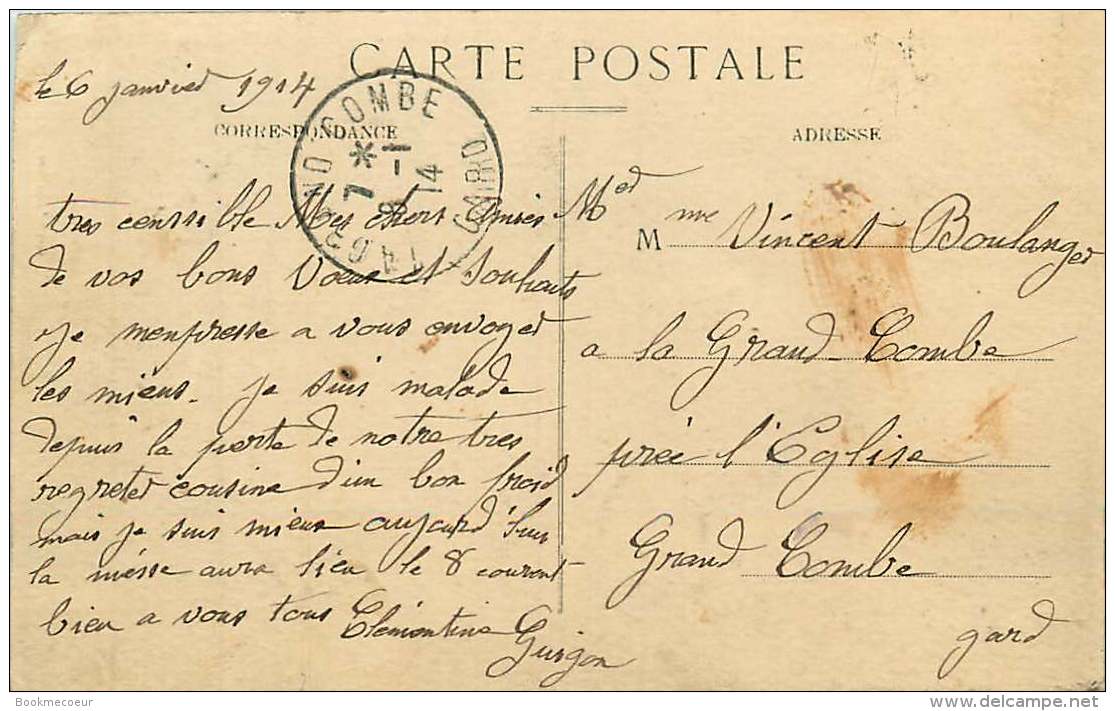 CARTE POSTALE
le 6 janvier 1914
CORRESPONDANCE
tres censsible Mes chers Amies
de vos bons Voeux et Souhaits
Je m'enpresse a vous envoyer
les miens. je suis malade
depuis la perte de notre tres
regreter cousine d'un bon froid
mais je suis mieux aujourd'hui
la messe aura lieu le 8 courent
bien a vous tous Clémentine
Guigon
GRAND COMBE
GARD
7 *
8 - 1
14
ADRESSE
M Vincent Boulanger
a la Grand Combe
prée l'Eglise
Grand Combe
gard
Bookmecoeur
www.delcampe.net